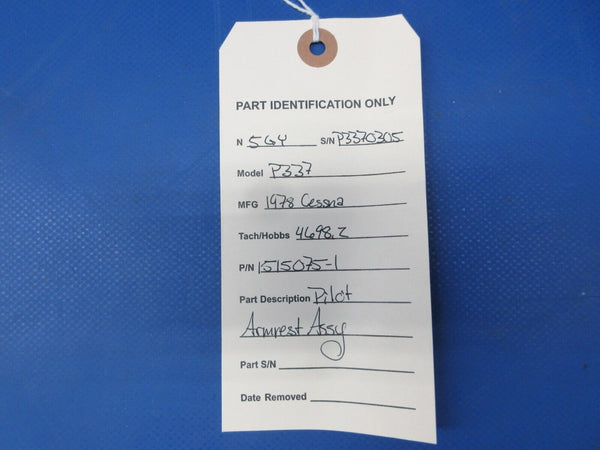 PART IDENTIFICATION ONLY
N 5GY S/N P3370305
Model P337
MFG 1978 Cessna
Tach/Hobbs 4698.2
P/N 1515075-1
Part Description Pilot
Armrest Assy
Part S/N
Date Removed